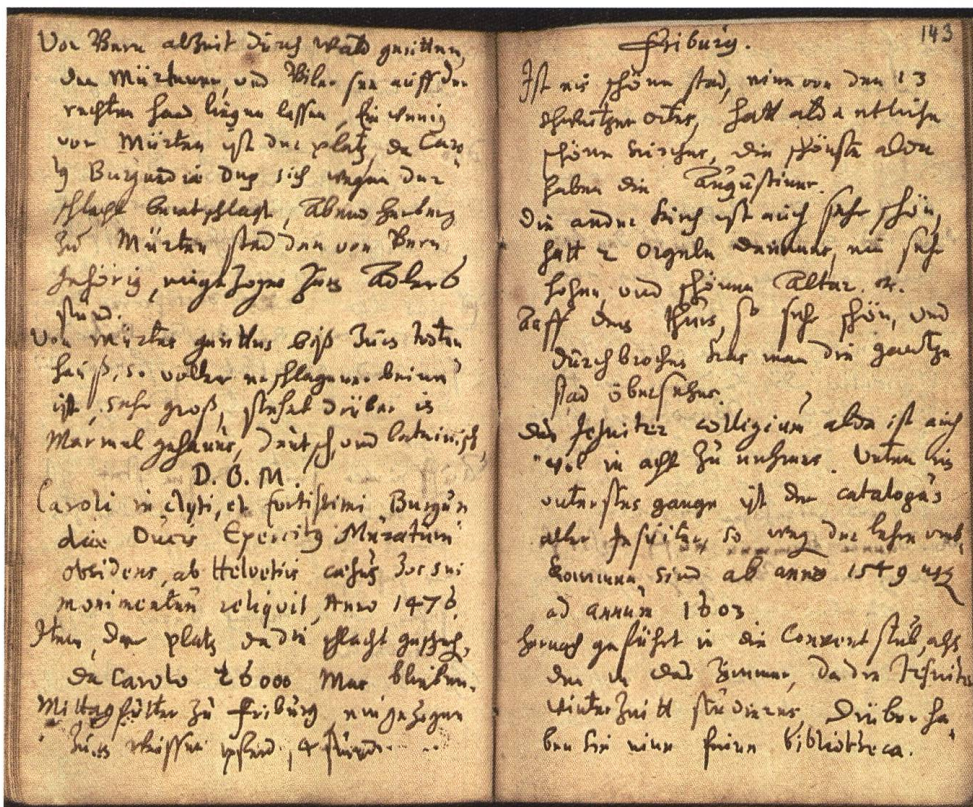 Von Bern allzeit durch wald geritten,
den Mürtner, und Biler see auff der
rechten hand liegen lassen, Ein wenig
vor Mürten ist der platz, da Caro
Burgundiæ Dux sich wegen der
schlacht berathschlagt, Abend herberg
zu Mürten stad den von Bern
gehörig, eingezogen zum Adler 6
stund.
Von Mürten geritten biß zum todten
hauß, so voller erschlagener beinn
ist, sehr groß, stehet drüber in
Marmel gehauen, deutsch, und lateinisch,
D. O. M.
Caroli inclyti, et fortissimi Burgun
diæ Ducis Exercitus Muratum
obsidens, ab Helvetiis cæsus hoc sui
monimentum reliquit, Anno 1476
Item, der platz da die schlacht geschehen,
da Carolo 26000 Man blieben.
Mittagfutter zu Friburg, eingezogen
zum weissen pferd, 4 stund
143
Friburg.
Ist ein schöne stad, eine von den 13
schweitzer orten, hatt alda etliche
schöne kirchen, die schönste alda
haben die Augustiner.
Die ander kirch ist auch sehr schön,
hatt 2 orgeln drinnen, ein sehr
hohen, und schönen Altar. &c.
Auff dem thurn, so sehr schön, und
durchbrochen kan man die gantze
stad übersehen.
Das Jesuiter collegium alda ist auch
wol in acht zu nehmen. Unten im
untersten gange ist der catalogus
aller Jesuiter, so weg. der lehre umb,
kommen, sind ab anno 1549 usq
ad annum 1603
Hernach geführt in die Conventstub, alß
den in das Zimmer, da die Jesuiter
winterzeitt studieren, Drüber ha,
ben sie eine feine bibliotheca.